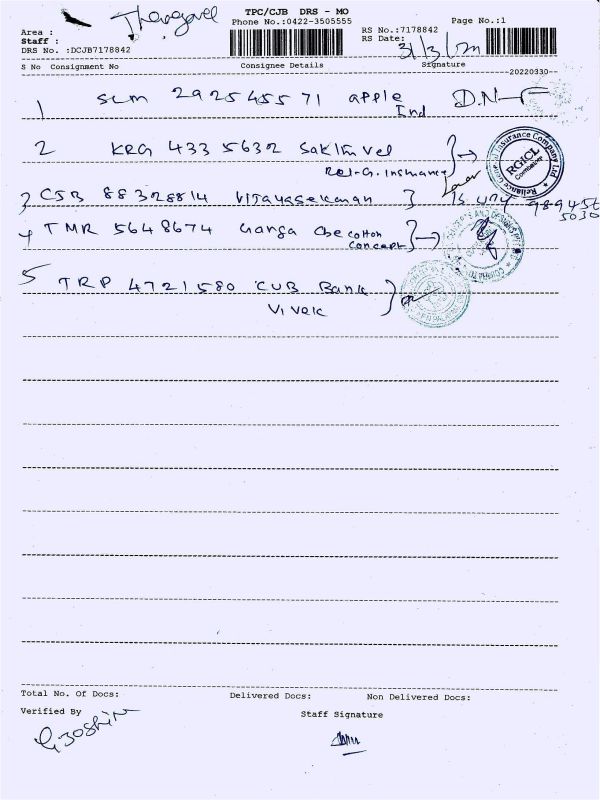 Thangavel
TPC/CJB DRS - MO
Phone No.:0422-3505555
Page No.:1
Area :
Staff :
DRS No. :DCJB7178842
RS No.:7178842
RS Date:
31/3/22
S No Consignment No
Consignee Details
Signature
20220330
1 SLM 292545571 apple
Ind
D.N
2 KRG 4335632 Sakthivel
Rel-G. Insurance
Reliance General Insurance Company Ltd.
RGICL
Coimbatore
3 CJB 88328814 Vijayasekaran
989456
5030
4 TMR 5648674 Ganga
Cotton
Concept
5 TRP 4721580 CUB Bank
Vivek
Total No. Of Docs:
Delivered Docs:
Non Delivered Docs:
Verified By
Staff Signature